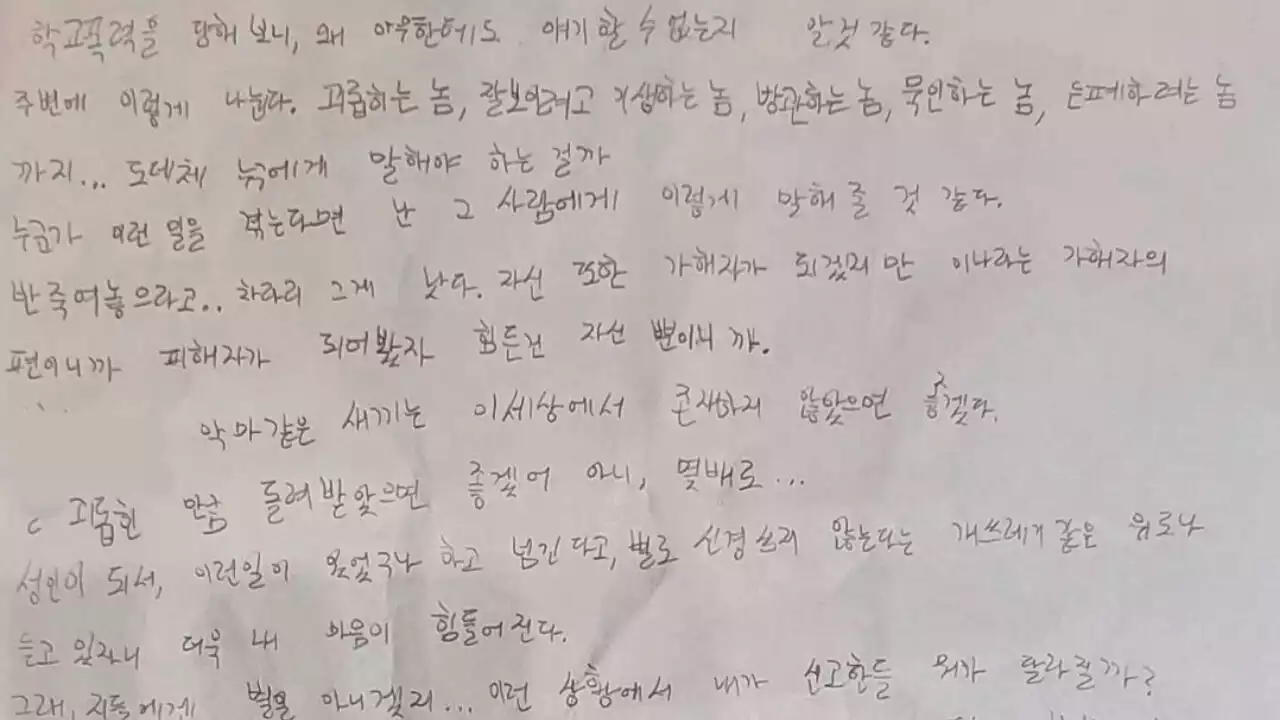 학교폭력을 당해 보니, 왜 아무한테도 얘기 할 수 없는지 알것 같다.
주변에 이렇게 나뉜다. 괴롭히는 놈, 잘보이려고 가상하는 놈, 방관하는 놈, 묵인하는 놈, 은폐하려는 놈
까지... 도데체 누구에게 말해야 하는 걸까
누군가 이런 일을 겪는다면 난 그 사람에게 이렇게 말해 줄 것 같다.
반 죽여놓으라고.. 차라리 그게 낫다. 자신 또한 가해자가 되겠지만 이나라는 가해자의
편이니까 피해자가 되어봤자 힘든건 자신 뿐이니 까.
악마같은 새끼는 이세상에서 존재하지 않았으면 좋겠다.
괴롭힌 만큼 돌려받았으면 좋겠어 아니, 몇배로...
성인이 되서, 이런일이 있었구나 하고 넘긴 다고, 별로 신경쓰지 않는다는 개쓰레기 같은 위로나
듣고 있자니 더욱 내 마음이 힘들어진다.
그래, 지들에게 별일 아니겠지... 이런 상황에서 내가 신고한들 뭐가 달라질까?